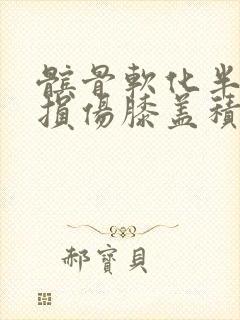 髕骨軟化半
損傷膝盖積
郝寶貝